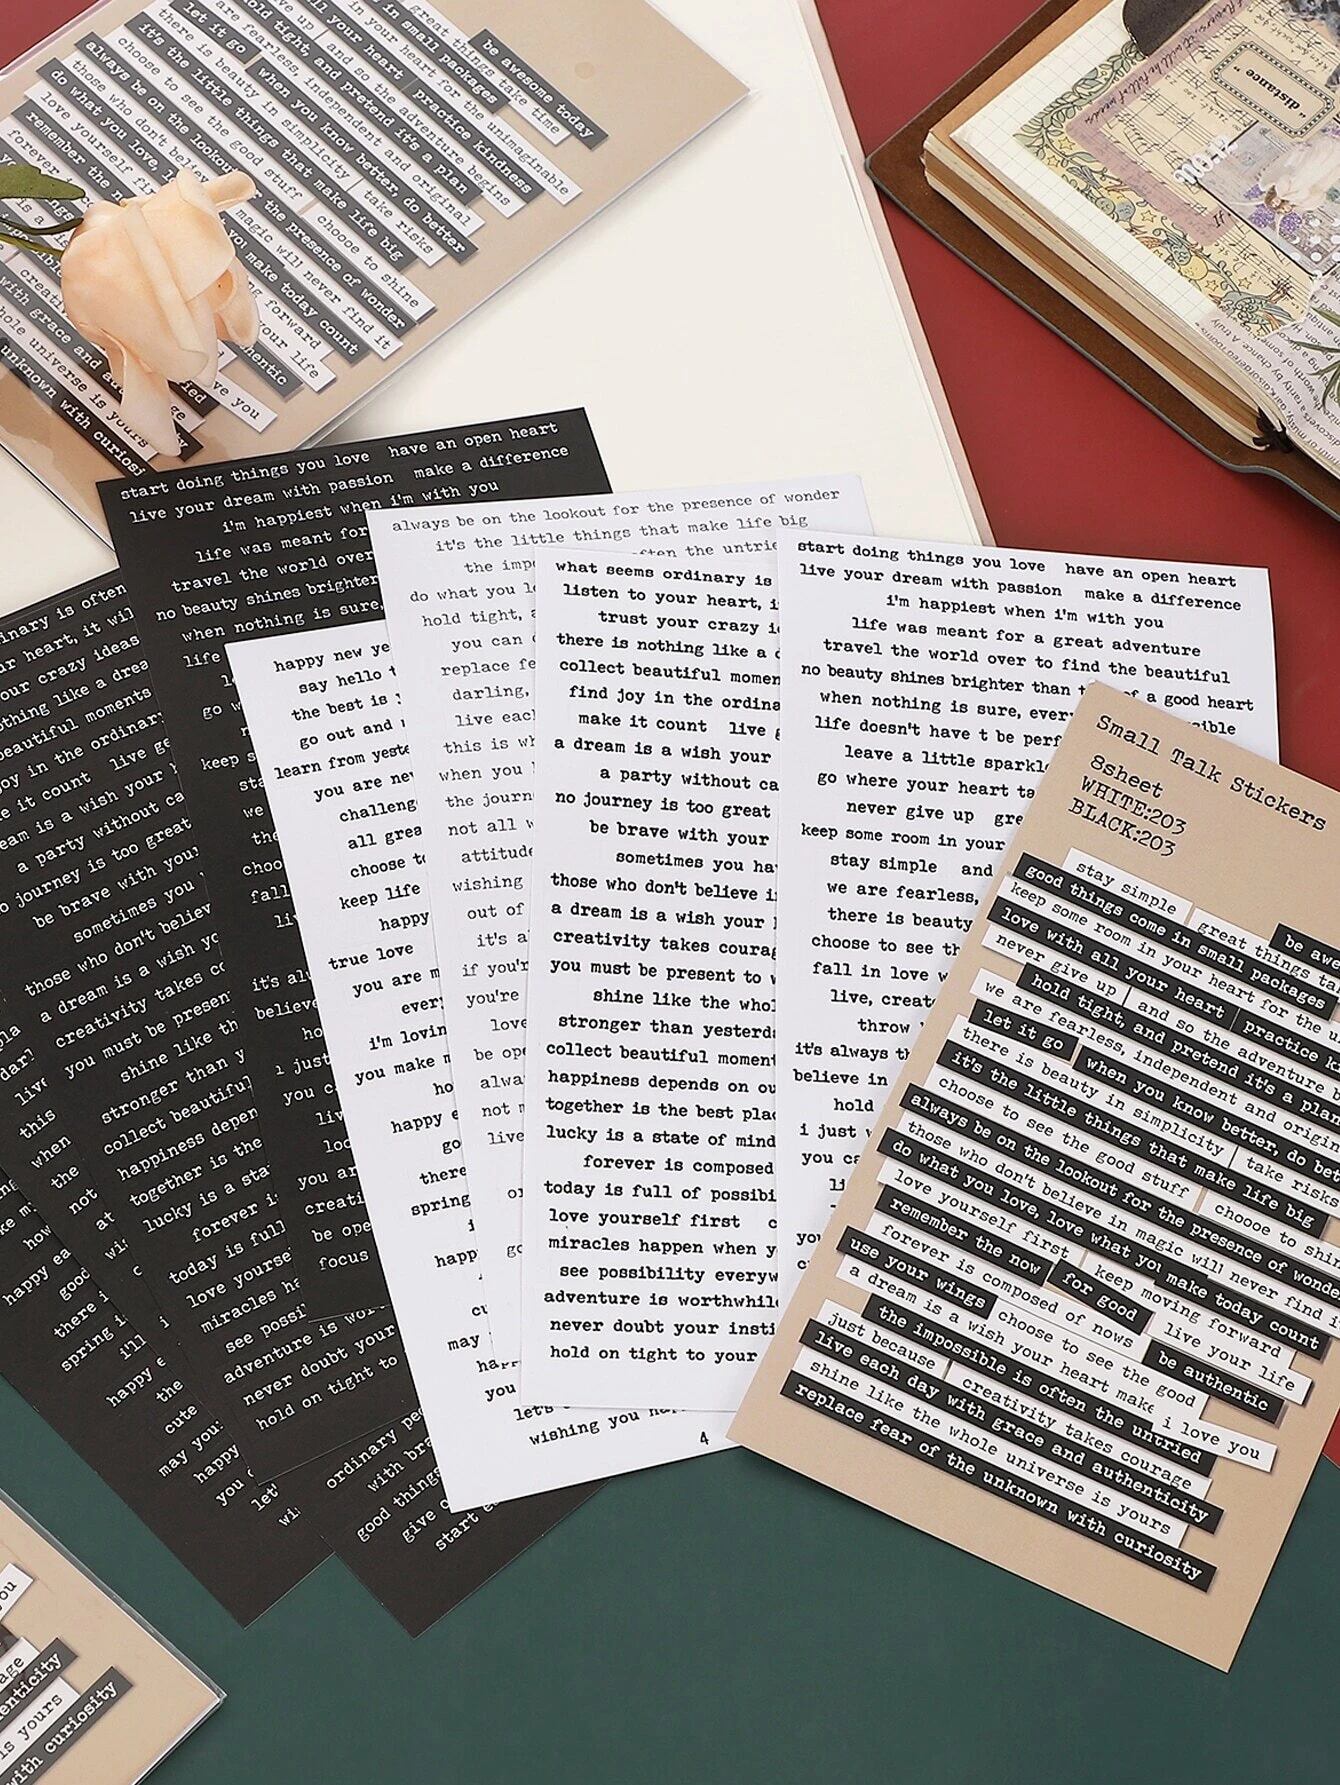 be awesome today
great things take time
in small packages
in your heart for the unimaginable
your heart
practice kindness
up
and so the adventure begins
hold tight, and pretend it's a plan
are fearless, independent and original
let it go
when you know better, do better
there is beauty in simplicity
take risks
it's the little things that make life big
choose to see the good stuff
chooose to shine
always be on the lookout
the presence of wonder
those who don't
magic will never find it
do what you love,
make today count
love yourself
forward
remember the
your life
forever
hentic
love you
creati
with grace and
universe is yours
unknown with curiosi
distance"
NO.12
start doing things you love have an open heart
live your dream with passion make a difference
i'm happiest when i'm with you
life was meant for
travel the world over
no beauty shines brighter
when nothing is sure,
life
go w
keep s
sta
we
the
choo
fall
liv
it's al
believe
ho
i just
you c
liv
loo
you ar
creati
be ope
focus
inary is often
ur heart, it wil
our crazy ideas
othing like a drea
beautiful moments
oy in the ordinary
e it count live ge
eam is a wish your
a party without ca
o journey is too great
be brave with your
sometimes you
those who don't believ
a dream is a wish yo
creativity takes co
you must be presen
shine like th
stronger than y
collect beautiful
happiness depen
together is the
lucky is a sta
forever i
today is full
love yourse
miracles ha
see possi
adventure is wor
never doubt your
hold on tight to
live
this
when
the
not
at
wi
how
happy ea
good
there i
spring i
ill
happy e
the
cute
may you
happy
you
let'
wi
ordinary pe
with bra
good things
give c
start e
happy new ye
say hello t
the best is y
go out and
learn from yeste
you are nev
challeng
all grea
choose to
keep life
happy
true love
you are m
ever
i'm lovin
you make m
ho
happy e
go
there
spring
i
happ
cu
may
hap
you
let's
wishing you ha
4
always be on the lookout for the presence of wonder
it's the little things that make life big
often the untrie
the imp
do what you lo
hold tight, a
you can
replace fe
darling,
live eac
this is wh
when you
the journ
not all w
attitude
wishing
out of
it's a
if you'r
you're
love
be ope
alwa
not m
live
or
go
what seems ordinary is
listen to your heart, i
trust your crazy i
there is nothing like a d
collect beautiful momen
find joy in the ordina
make it count live g
a dream is a wish your
a party without ca
no journey is too great
be brave with your
sometimes you ha
those who don't believe i
a dream is a wish your
creativity takes courag
you must be present to w
shine like the whol
stronger than yesterd
collect beautiful moment
happiness depends on ou
together is the best plac
lucky is a state of mind
forever is composed
today is full of possibi
love yourself first c
miracles happen when y
see possibility everyw
adventure is worthwhile
never doubt your insti
hold on tight to your
start doing things you love have an open heart
live your dream with passion make a difference
i'm happiest when i'm with you
life was meant for a great adventure
travel the world over to find the beautiful
no beauty shines brighter than t of a good heart
when nothing is sure, ever ssible
life doesn't have t be perf
leave a little sparkl
go where your heart ta
never give up gre
keep some room in your
stay simple and
we are fearless,
there is beauty
choose to see th
fall in love w
live, creat
throw
it's always th
believe in
hold
i just w
you ca
li
you
Small Talk Stickers
8sheet
WHITE:203
BLACK:203
stay simple
great things ta
be awe
good things come in small packages
keep some room in your heart for the u
love with all your heart
practice k
never give up
and so the adventure
hold tight, and pretend it's a pla
we are fearless, independent and origin
let it go
when you know better, do bet
there is beauty in simplicity
take risks
it's the little things that make life big
choose to see the good stuff
chooose to shin
always be on the lookout for the presence of wonde
those who don't believe in magic will never find i
do what you love, love what you
make today count
love yourself first
keep moving forward
remember the now
for good
live your life
forever is composed of nows
be authentic
use your wings
choose to see the good
a dream is a wish your heart make
i love you
the impossible is often the untried
just because
creativity takes courage
live each day with grace and authenticity
shine like the whole universe is yours
replace fear of the unknown with curiosity
ou
age
enticity
is yours
with curiosity